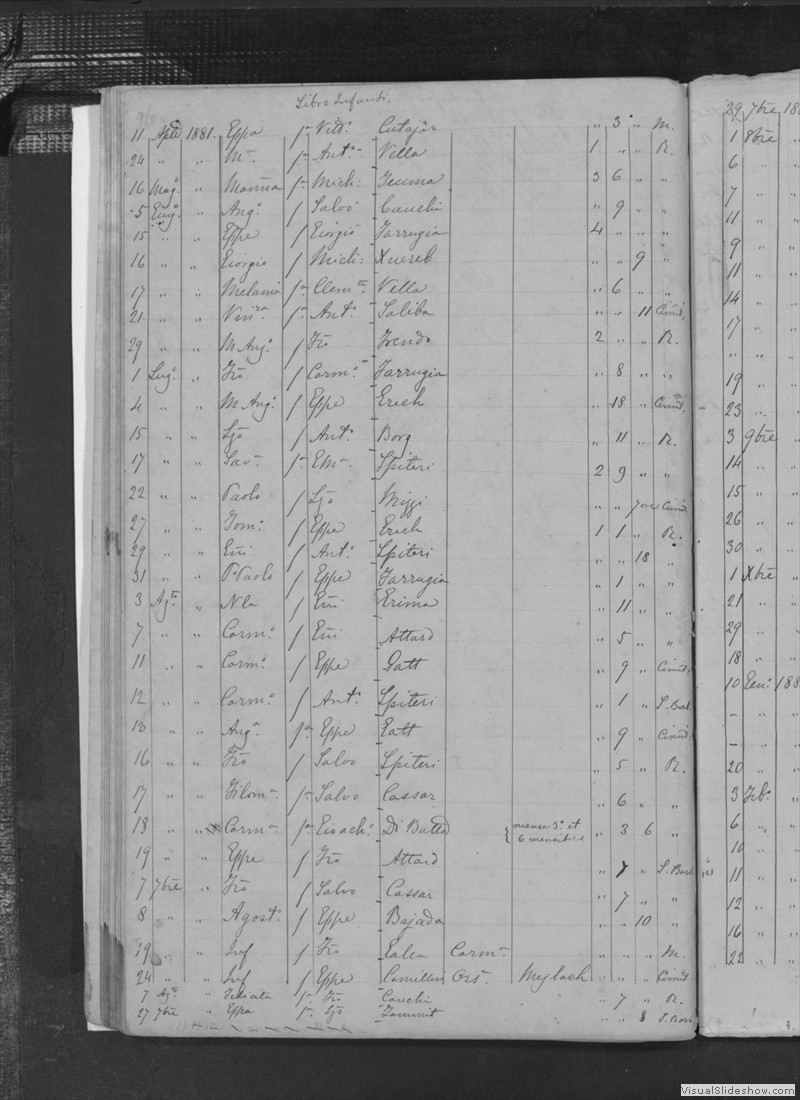 Libro Infanti.
11 Aple 1881. Eppa fa Vitto Cutajar " 3 " M.
24 " " Ma fa Anto Vella 1 " " R.
16 Mago " Marina fa Mich: 3 6 " "
5 " Ango f Salvo Cauchi " 9 " "
15 " " Eppe f Giorgio Farrugia 4 " " "
16 " " Giorgio f Mich: Xuereb " " 9 "
17 " " Melania fa Clemte Vella " 6 " "
21 " " fa Anto Saliba " " 11 Cimit.
29 " " M Ango f Fco Trevdo 2 " " R.
1 Lugo " Fco f Carmo Farrugia " 8 " "
4 " " M Ango f Eppe Grech " 18 " Cimit.
15 " " Ljo f Anto Borg " 11 " R.
17 " " Sava fa Emo Spiteri 2 9 " "
22 " " Paolo f Ljo Mizzi " " 7 ore Cimit.
27 " " Tomo f Eppe Grech 1 1 " R.
29 " " Gni f Anto Spiteri " " 18 "
31 " " P. Paolo f Eppe Farrugia " 1 " "
3 Agto " Nla f Gni Grima " 11 " "
7 " " Carmo f Gni Attard " 5 " "
11 " " Carmo f Eppe Gatt " 9 " Cimit.
12 " " Carmo f Anto Spiteri " 1 " S. Barb
13 " " Anga fa Eppe Gatt " 9 " Cimit.
16 " " Fco f Salvo Spiteri " 5 " R.
17 " " Filoma fa Salvo Cassar " 6 " "
18 " " Carma fa Gioacho Di Batta mense 3o et 6 mensibus " 3 6 "
19 " " Eppe f Fco Attard " 7 " S. Barb
7 7bre " Fco f Salvo Cassar " 7 " "
8 " " Agosto f Eppe Bajada " " 10 "
19 " " Inf f Fco Galea Carma " " " M.
24 " " Inf f Eppe Camilleri Ors. " " " Cimit.
7 Ago " fa Fco Cauchi " 7 " R.
27 7bre " Eppa fa Ljo Tammit " " 8 S. Barb
29 7bre 188
1 8bre
6 "
7 "
11 "
9 "
11 "
14 "
17 "
" "
19 "
23 "
3 9bre
14 "
15 "
26 "
30 "
1 Xbre
21 "
29 "
18 "
10 Geno 188
-
-
20 "
3 Febo
6 "
10 "
11 "
12 "
16 "
22 "
VisualSlideshow.com